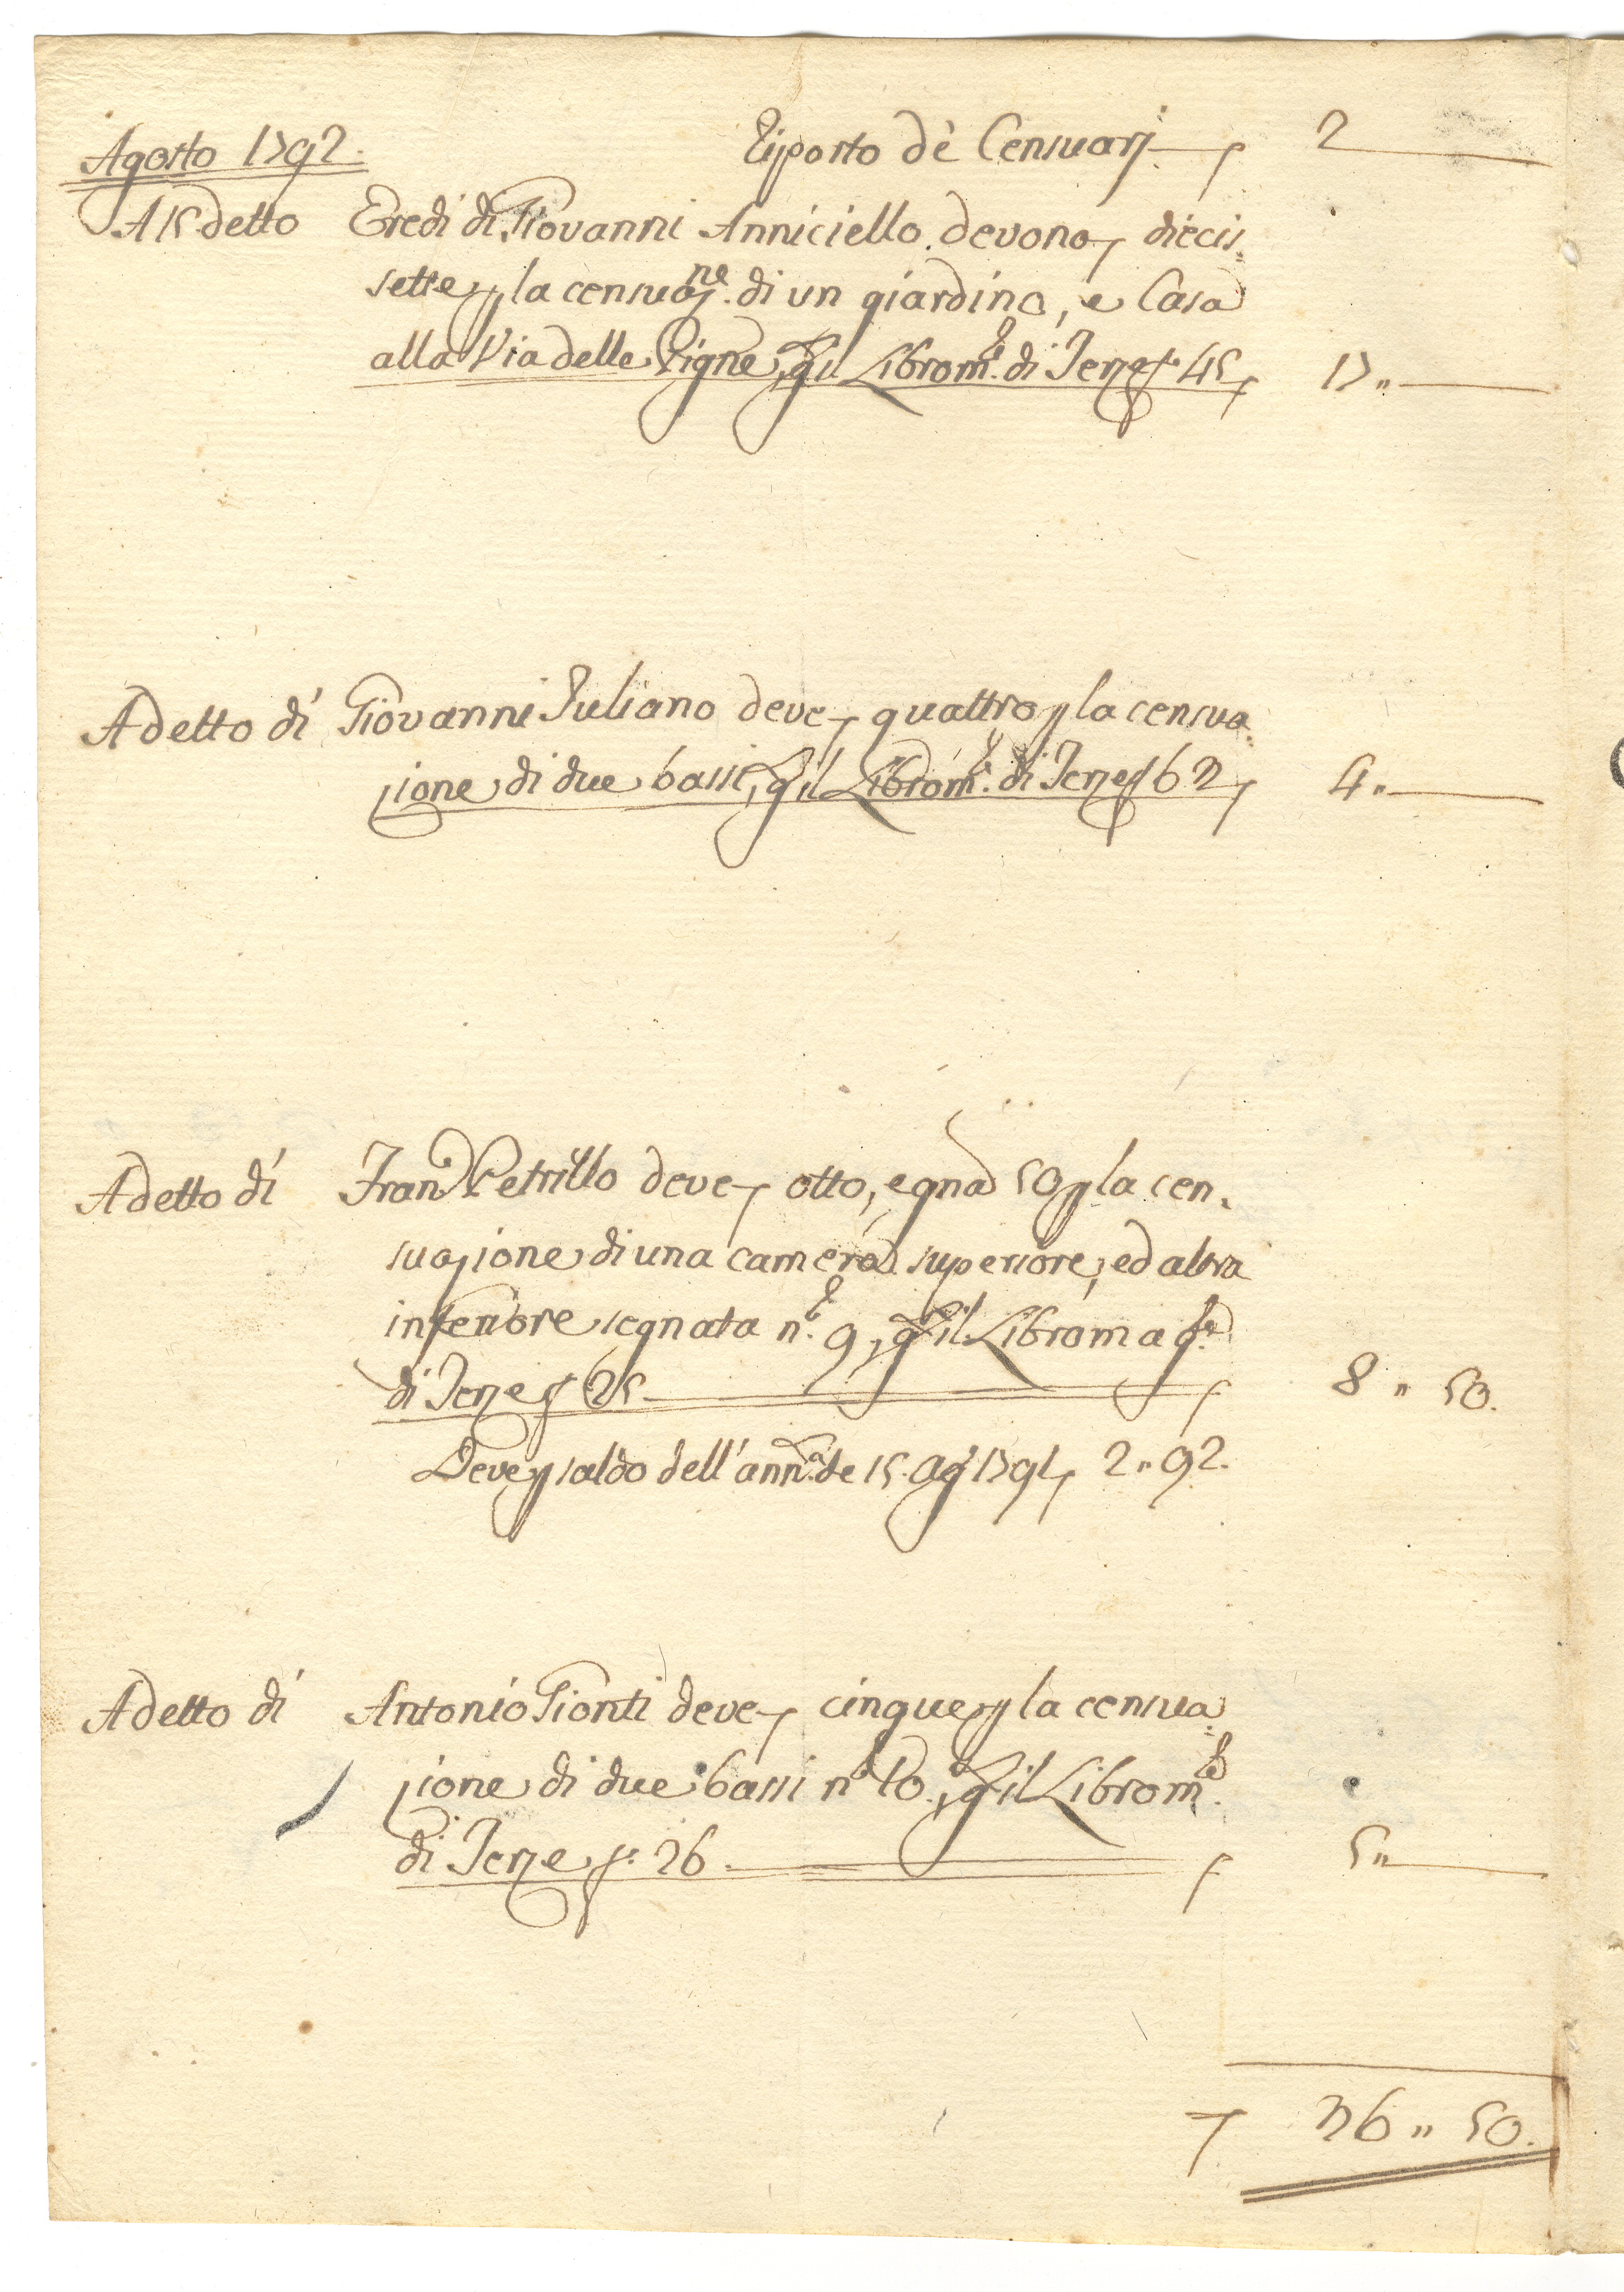 Agosto 1792.
Riporto de' Censuarj 2
A 15 detto Eredi di Giovanni Anniciello devono diecis=
sette p la censuaz.ne di un giardino, e Casa
alla Via delle Pigne, q. il Libro m.e di Terze f. 45 17"
A detto dì Giovanni Iuliano deve quattro p la censua=
zione di due bassi, q. il Libro m.e di Terze f. 63 4"
A detto dì Fran.o Petrillo deve otto, e gna 50 p la cen=
suazione di una camera superiore, ed altra
inferiore segnata n.o 9, q. il Libro ma
di Terze f. 25 8 " 50.
Deve p saldo dell' 15. Ag.o 1791 2 " 92.
A detto dì Antonio Gionti deve cinque p la censua=
zione di due bassi n.o 10, q. il Libro m.e
di Terze f. 26. 5"
36 " 50.